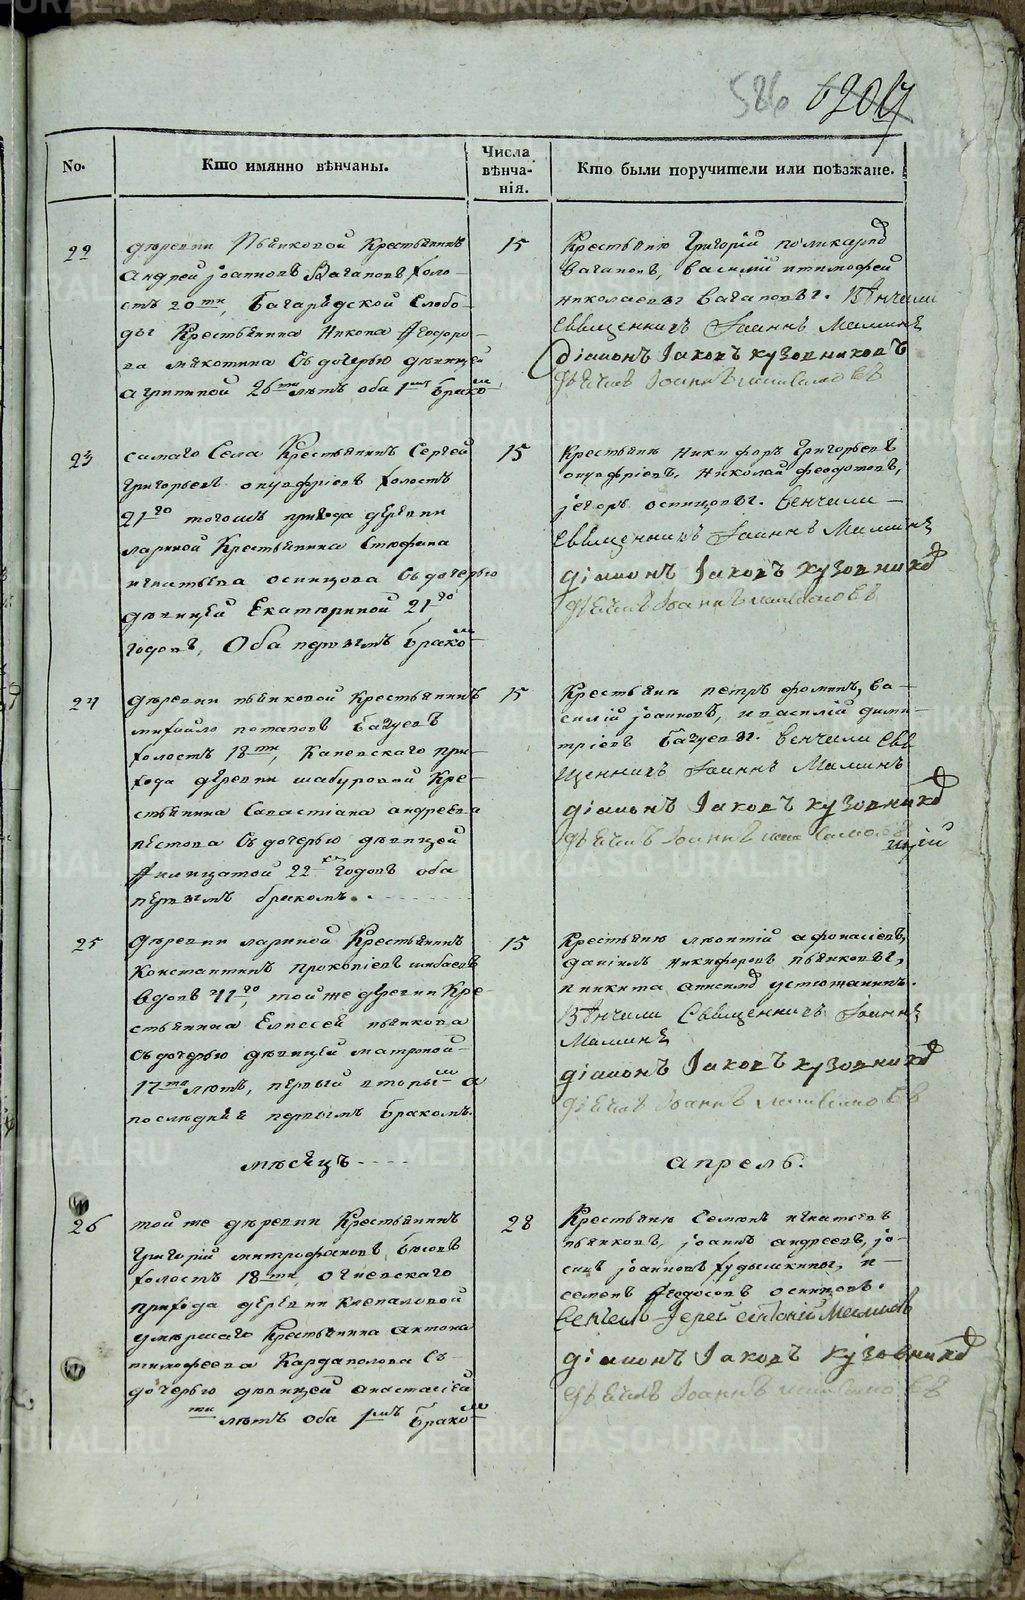 586 620
No.
Кто имянно вѣнчаны.
Числа вѣнча-
нія.
Кто были поручители или поѣзжане.
22
деревни Пьянковой Крестьянинъ
Андрей Іоанновъ Вагановъ холо
стъ 20ти, Багаряцкой Слобо-
ды Крестьянина Никона Ѳеодоро-
ва съ дочерью дѣвицей
Агрипиной 26ти лѣтъ оба 1мъ бракомъ
15
Крестьяне Григорій Поликарповъ
Вагановъ, Василий и Тимофей
Николаевы Вагановы. Вѣнчали
Священникъ Іоаннъ Маминъ
Діаконъ Іаковъ Кузовниковъ
дьячекъ Іоаннъ
23
самаго Села Крестьянинъ Сергей
Григорьевъ Онуфріевъ холостъ
21го тогожъ прихода деревни
Лариной Крестьянина Стефана
Игнатьева Осинцова съ дочерью
дѣвицей Екатериной 21го
годовъ, Оба первымъ бракомъ
15
Крестьяне Никифоръ Григорьевъ
Онуфріевъ, Николай Феодотовъ,
Іегоръ Осинцовы. Венчали
Священникъ Іоаннъ Маминъ
діаконъ Іаковъ Кузовниковъ
дьячекъ Іоаннъ
24
деревни Пьянковой Крестьянинъ
Михайло Потаповъ Бачуевъ
холостъ 18ти, Каневскаго при-
хода деревни Шабуровой Кре-
стьянина Савастіана Андреева
Пестова съ дочерью дѣвицей
Акилиной 22хъ годовъ оба
первымъ бракомъ.
15
Крестьяне Петръ Фоминъ, Ва-
силій Іоанновъ, и Василий Дими-
тріевъ Бачуевы. Венчали Свя
щенникъ Іоаннъ Маминъ
діаконъ Іаковъ Кузовниковъ
дьячекъ Іоаннъ
25
Деревни Лариной Крестьянинъ
Константинъ Прокопіевъ
вдовъ 41го, той же деревни Кре-
стьянина Елисея Пьянкова
съ дочерью дѣвицей Матроной
17ти лѣтъ, первый вторымъ а
последняя первымъ бракомъ.
15
Крестьяне Леонтій Афонасіевъ,
Даніилъ Никифоровъ Пьянковы,
и Никита Устюжанинъ.
Вѣнчали Священникъ Іоаннъ
Маминъ
діаконъ Іаковъ Кузовниковъ
дьячекъ Іоаннъ
мѣсяцъ
апрель.
26
той же деревни Крестьянинъ
Григорій Митрофановъ
холостъ 18ти, Огневскаго
прихода деревни Клепаловой
умершаго Крестьянина Антона
Тимофеева Кардаполова съ
дочерью дѣвицей Анастасіей
ти лѣтъ оба 1мъ бракомъ
28
Крестьяне Семенъ Игнатьевъ
Пьянковъ, Іоаннъ Андреевъ, Іо-
сифъ Іоанновъ Худышкины, и
Семенъ Ѳеодосовъ Осинцовъ.
Венчалъ Іерей Маминъ
діаконъ Іаковъ Кузовниковъ
дьячекъ Іоаннъ